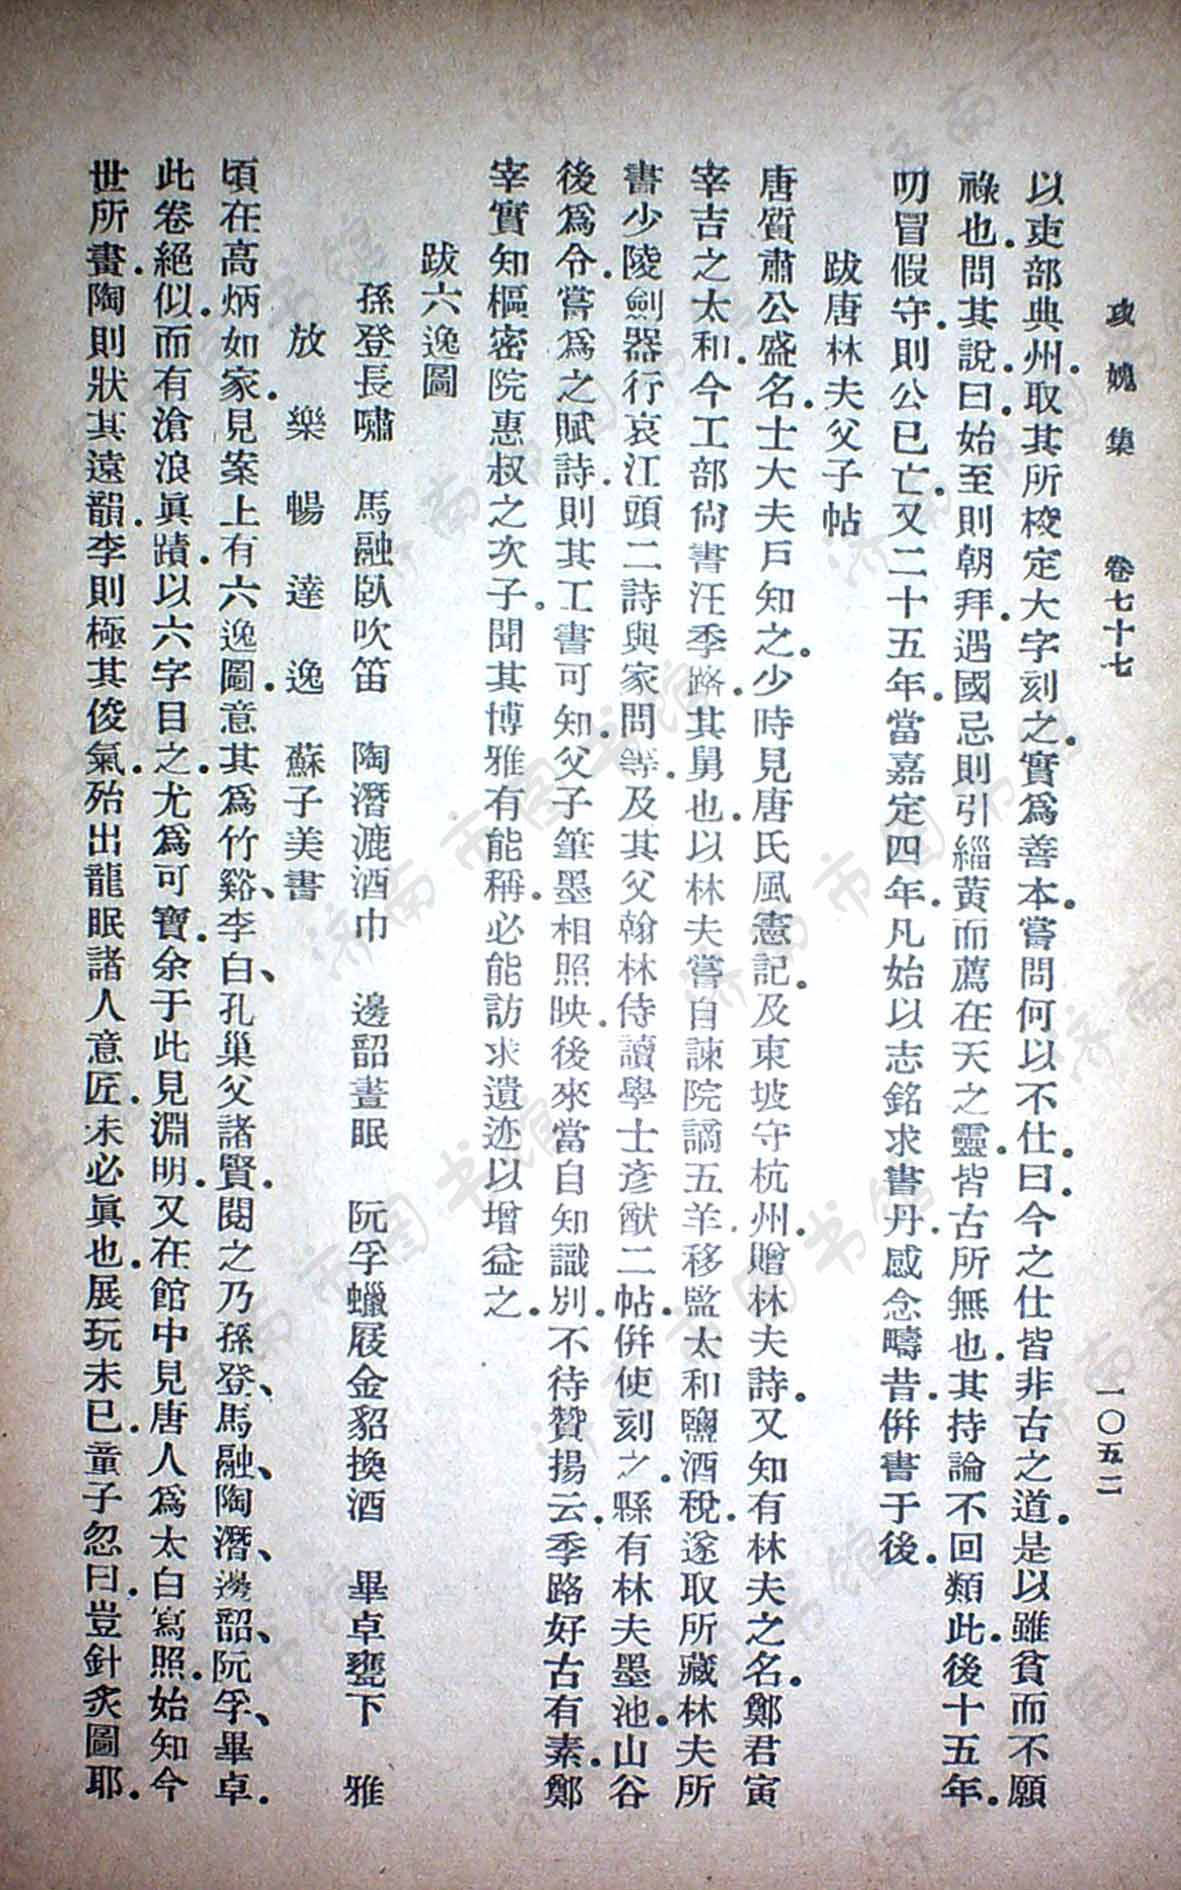 攻媿集　卷七十七　一〇五二
以吏部典州.取其所校定大字刻之.實爲善本.嘗問何以不仕.曰.今之仕皆非古之道.是以雖貧而不願
祿也.問其說.曰.始至則朝拜.遇國忌則引緇黃而薦在天之靈.皆古所無也.其持論不回類此.後十五年.
叨冒假守.則公已亡.又二十五年.當嘉定四年.凡始以志銘求書丹.感念疇昔.併書于後.
跋唐林夫父子帖
唐質肅公盛名.士大夫戶知之.少時見唐氏風憲記.及東坡守杭州.贈林夫詩.又知有林夫之名.鄭君寅
宰吉之太和.今工部尙書汪季路.其舅也.以林夫嘗自諫院謫五羊.移監太和鹽酒稅.遂取所藏林夫所
書少陵劍器行哀江頭二詩與家問等.及其父翰林侍讀學士彦猷二帖.併使刻之.縣有林夫墨池.山谷
後爲令.嘗爲之賦詩.則其工書可知.父子筆墨相照映.後來當自知識別.不待贊揚云.季路好古有素.鄭
宰實知樞密院惠叔之次子.聞其博雅有能稱.必能訪求遺迹以增益之.
跋六逸圖
孫登長嘯　馬融臥吹笛　陶潛漉酒巾　邊韶晝眠　阮孚蠟屐金貂換酒　畢卓甕下　雅
放　樂　暢　達　逸　蘇子美書
頃在高炳如家.見案上有六逸圖.意其爲竹谿、李白、孔巢父諸賢.閱之乃孫登、馬融、陶潛、邊韶、阮孚、畢卓.
此卷絕似.而有滄浪眞蹟.以六字目之.尤爲可寶.余于此見淵明.又在館中見唐人爲太白寫照.始知今
世所畫.陶則狀其遠韻.李則極其俊氣.殆出龍眠諸人意匠.未必眞也.展玩未已.童子忽曰.豈針炙圖耶.